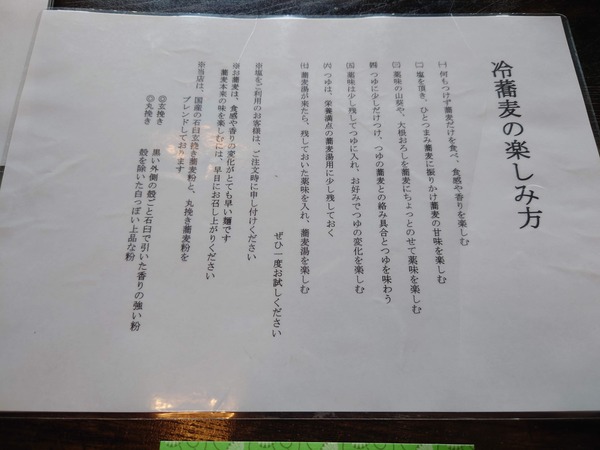 冷蕎麦の楽しみ方
㈠ 何もつけず蕎麦だけを食べ、食感や香りを楽しむ
㈡ 塩を頂き、ひとつまみ蕎麦に振りかけ蕎麦の甘味を楽しむ
㈢ 薬味の山葵や、大根おろしを蕎麦にちょっとのせて薬味を楽しむ
㈣ つゆに少しだけつけ、つゆの蕎麦との絡み具合とつゆを味わう
㈤ 薬味は少し残してつゆに入れ、お好みでつゆの変化を楽しむ
㈥ つゆは、栄養満点の蕎麦湯用に少し残しておく
㈦ 蕎麦湯が来たら、残しておいた薬味を入れ、蕎麦湯を楽しむ
ぜひ一度お試しください
※塩をご利用のお客様は、ご注文時に申し付けください
※お蕎麦は、食感や香りの変化がとても早い麺です
蕎麦本来の味を楽しむには、早目にお召し上がりください
※当店は、国産の石臼玄挽き蕎麦粉と、丸挽き蕎麦粉を
ブレンドしております
◎玄挽き 黒い外側の殻ごと石臼で引いた香りの強い粉
◎丸挽き 殻を除いた白っぽい上品な粉